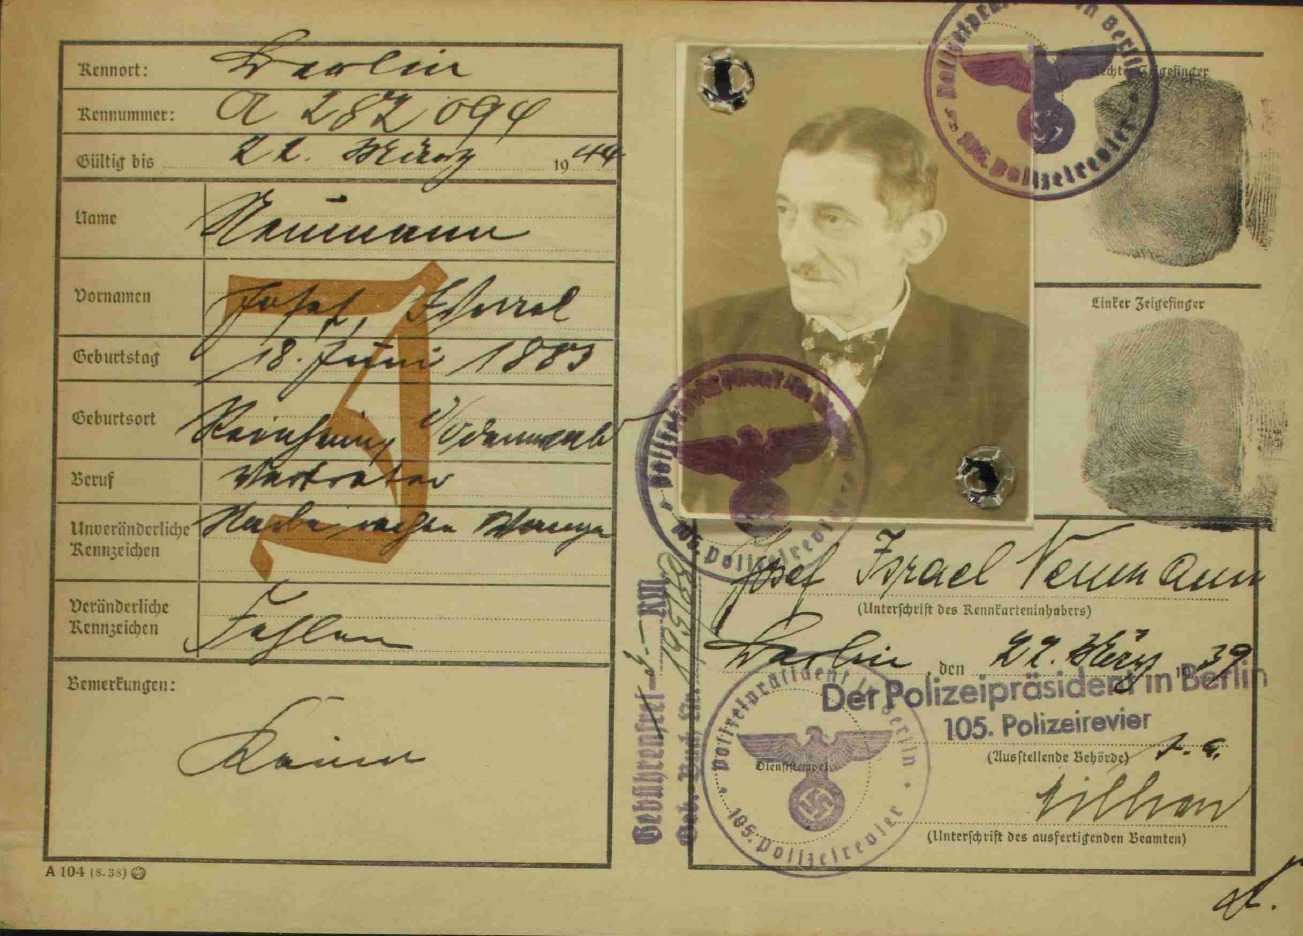 Kennort: Berlin
Kennummer: A 282 094
Gültig bis 22. März 1944
Name Neumann
Vornamen Josef, Israel
Geburtstag 18. Juni 1883
Geburtsort Odenwald
Beruf Vertreter
Unveränderliche Kennzeichen Narbe rechte Wange
Veränderliche Kennzeichen Fehlen
Bemerkungen:
Keine
A 104 (8. 38)
J
Gebührenfrei – 3 – RM
Polizeipräsident in Berlin
105. Polizeirevier
Rechter Zeigefinger
Linker Zeigefinger
Polizeipräsident in Berlin
105. Polizeirevier
Josef Israel Neumann
(Unterschrift des Kennkarteninhabers)
Berlin, den 22. März 1939
Der Polizeipräsident in Berlin
105. Polizeirevier
(Ausstellende Behörde)
Polizeipräsident in Berlin
Dienststempel
105. Polizeirevier
(Unterschrift des ausfertigenden Beamten)